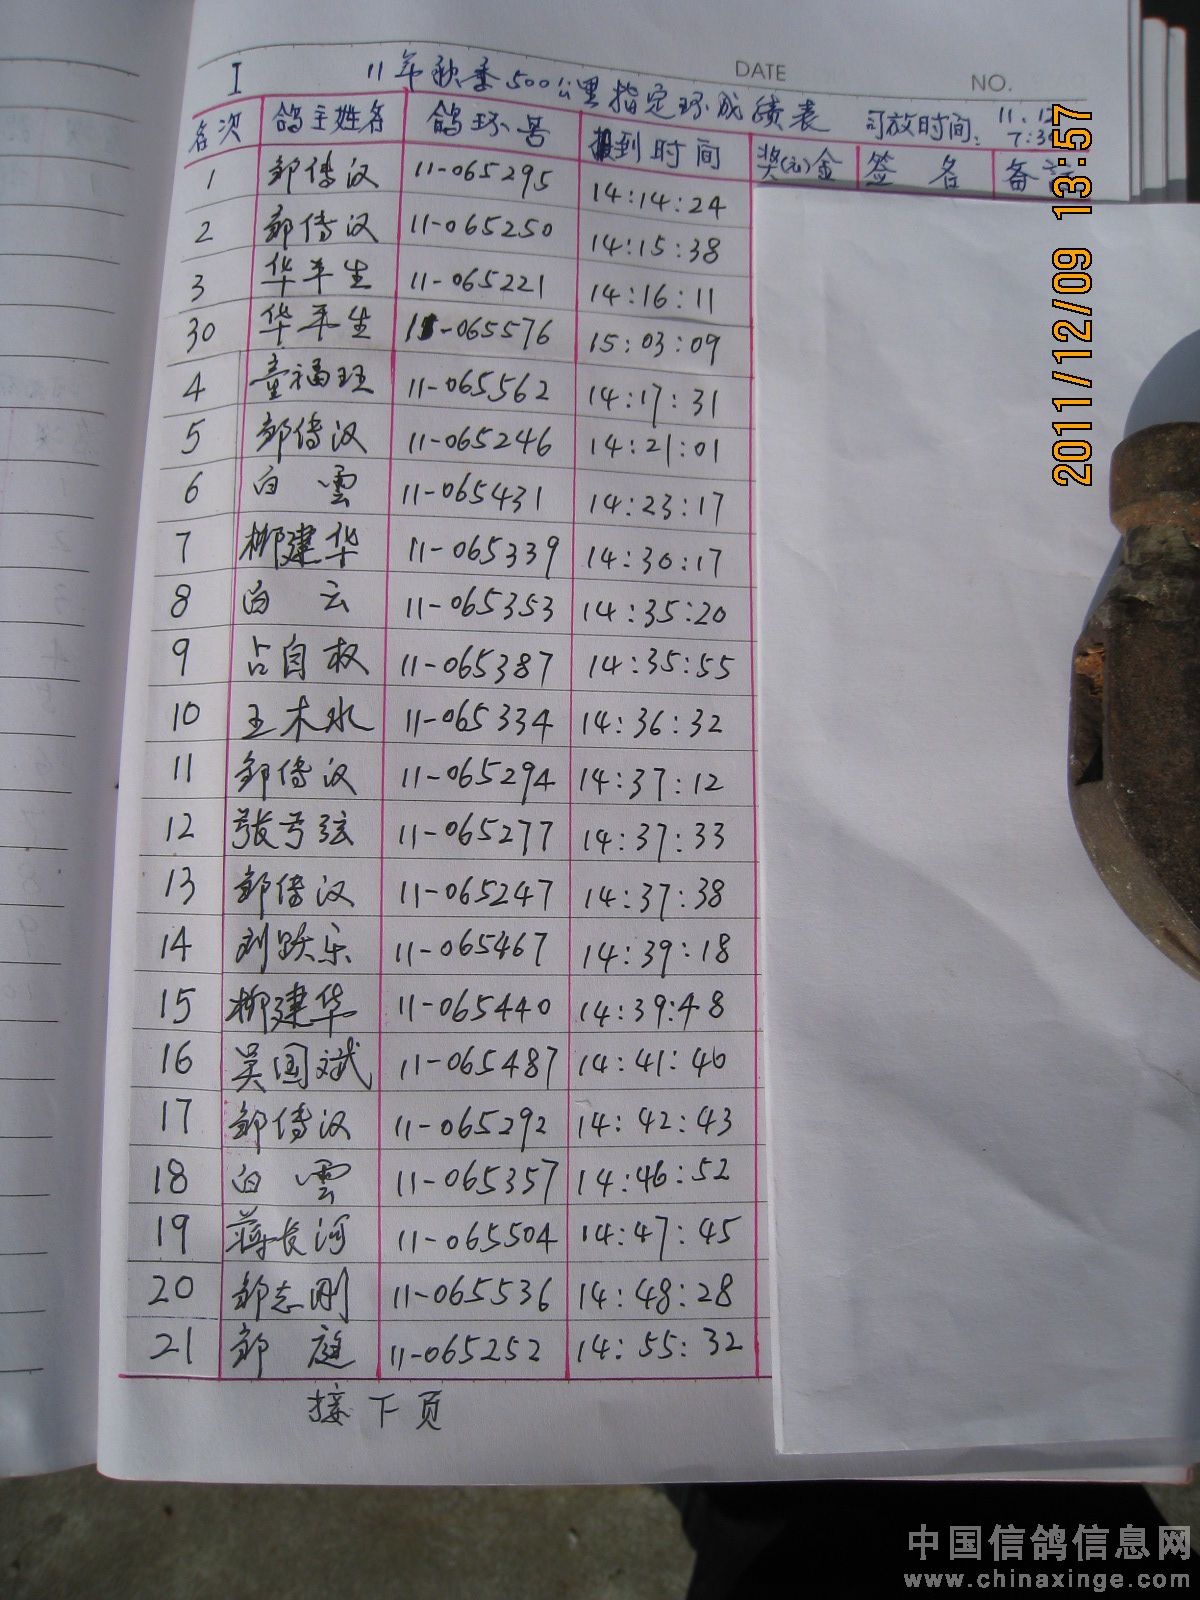 DATE
NO.
I 11年秋季500公里指定环成绩表 司放时间: 11.12 7:3
名次 鸽主姓名 鸽环号 报到时间 奖(元)金 签名 备注
1 邹传汉 11-065295 14:14:24
2 邹传汉 11-065250 14:15:38
3 华平生 11-065221 14:16:11
30 华平生 11-065576 15:03:09
4 童福班 11-065562 14:17:31
5 邹传汉 11-065246 14:21:01
6 白雲 11-065431 14:23:17
7 柳建华 11-065339 14:30:17
8 白云 11-065353 14:35:20
9 占自权 11-065387 14:35:55
10 王木水 11-065334 14:36:32
11 邹传汉 11-065294 14:37:12
12 张弓弦 11-065277 14:37:33
13 邹传汉 11-065247 14:37:38
14 刘跃乐 11-065467 14:39:18
15 柳建华 11-065440 14:39:48
16 吴国斌 11-065487 14:41:46
17 邹传汉 11-065292 14:42:43
18 白雲 11-065357 14:46:52
19 蒋长河 11-065504 14:47:45
20 邹志刚 11-065536 14:48:28
21 邹庭 11-065252 14:55:32
接下页
2011/12/09 13:57
中国信鸽信息网
www.chinaxinge.com